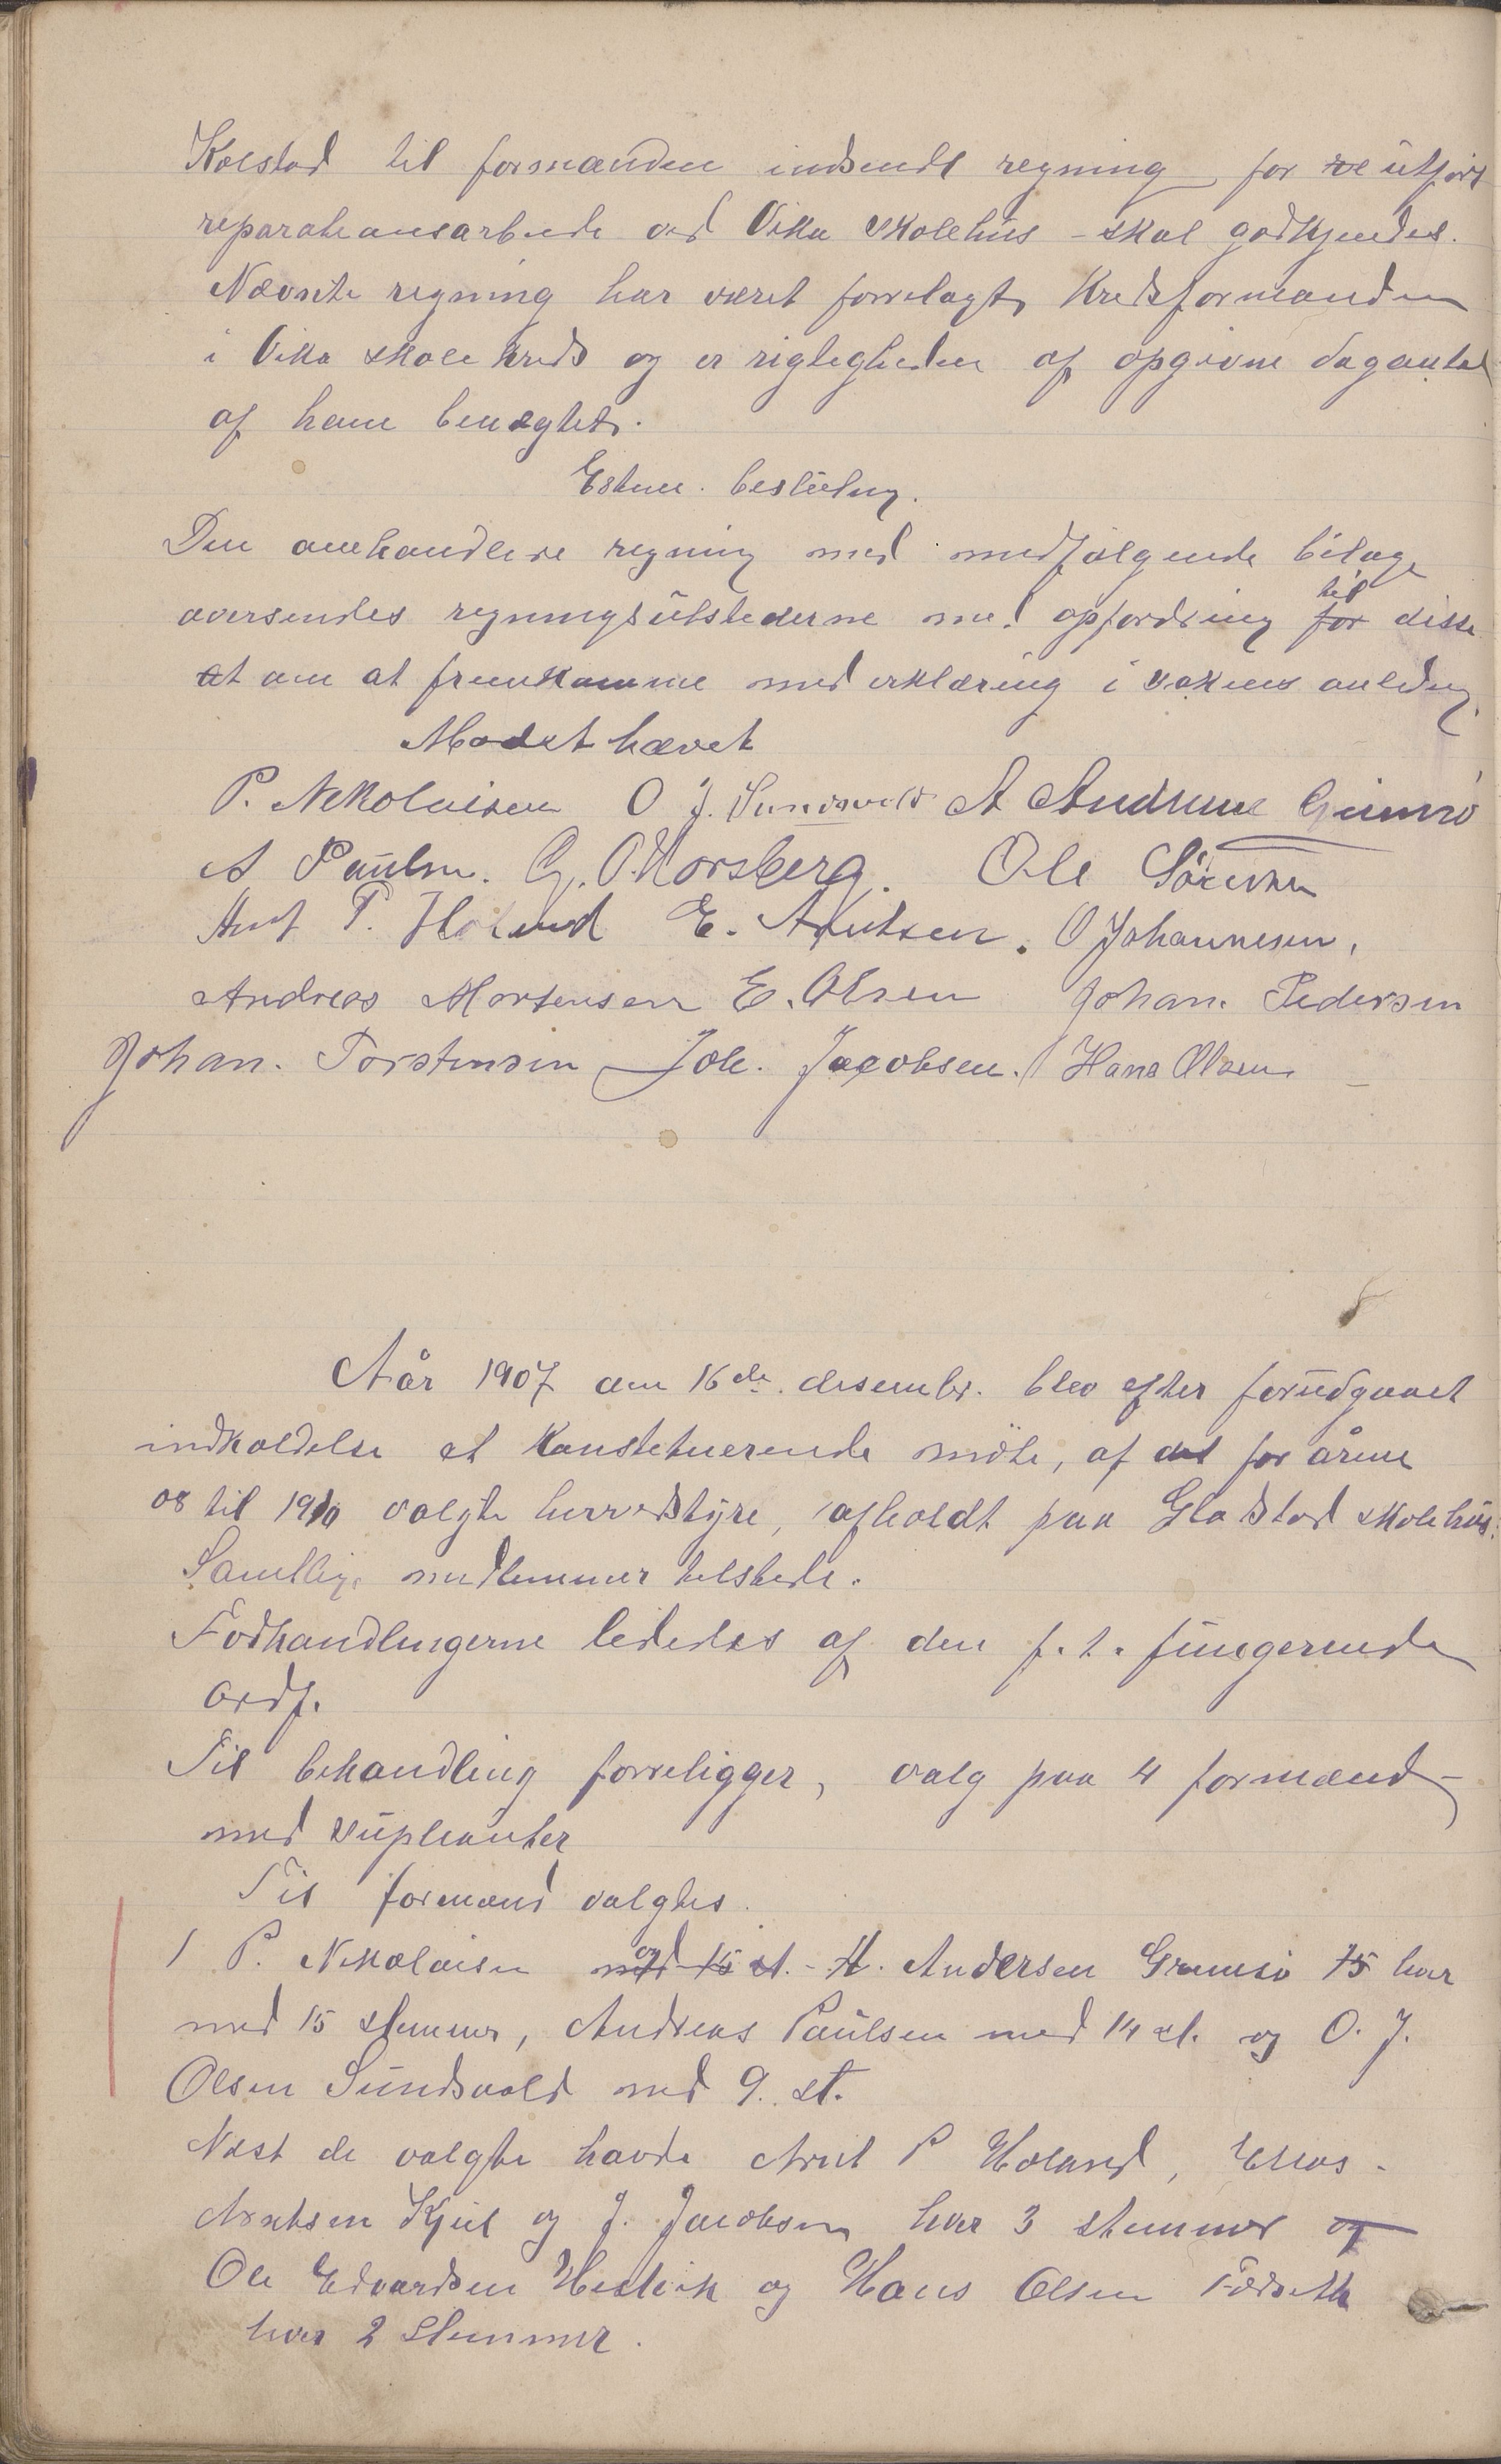 Kolstad til formanden indsendt regning for re utført
reparationsarbeide ved Vika skolehus - skal godkjendes.
Nævnte regning har været forelagt, kredsformanden
i Vika skolekreds og er rigtigheden af opgivne dagantal
af ham benægtet.
Estem. beslutng.
Den omhandlede regning med medfølgende bilage
oversendes regningsutstederne med opfordring for til disse
at om at fremkomme med erklæring i sakens anledng.
Mødet hævet
P. Nikolaisen O J. Sundsvold A Andersen Grimsø
A Paulsen. G. O. Horsberg. Ole Sørensen
Arnt P. Holand E. Arntsen. O Johannesen.
Andreas Mortensen E. Olsen Johan. Pedersen
Johan. Torstensen Joh. Jacobsen. Hans Olsen
Aår 1907 den 16de desember. blev efter forudgaaet
indkaldelse et konstituerende møte, af det for årene
08 til 1910 valgte herredstyre, afholdt paa Gladstad skolehus.
Samtlige medlemmer tilstede.
Forhandlingerne lededes af den f. t. fungerende
ordf.
Til behandling foreligger, valg paa 4 formænd
med supleanter
Til formænd valgtes.
1 P. Nikolaisen med 15 st. og A. Andersen Grimsø 15 hver
med 15 stemmer, Andreas Paulsen med 14 st. og O. J.
Olsen Sundsvold med 9. st.
Næst de valgte havde Arnt P Holand, Elias
Arntsen Kjul og J. Jacobsen hver 3 stemmer og
Ole Edvardsen Hestvik og Hans Olsen Forseth
hver 2 stemmer.